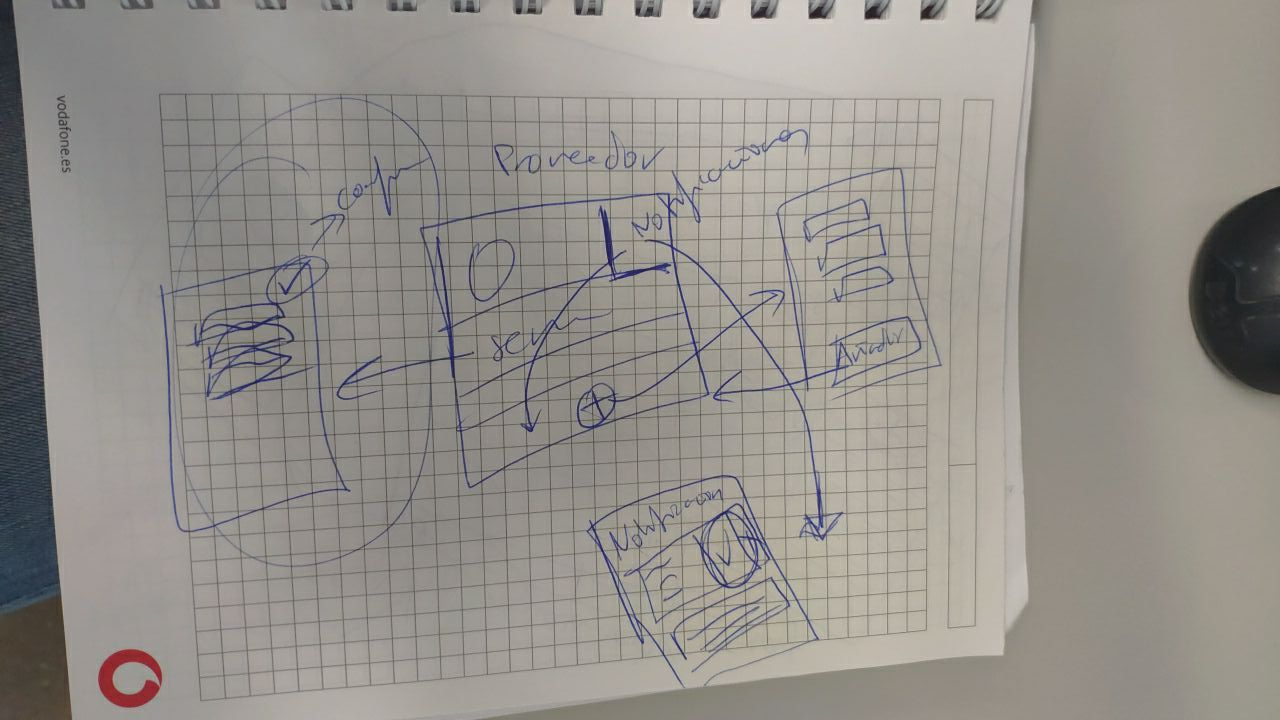 vodafone.es
Proveedor
Notificaciones
confir
Añadir
Notificacion